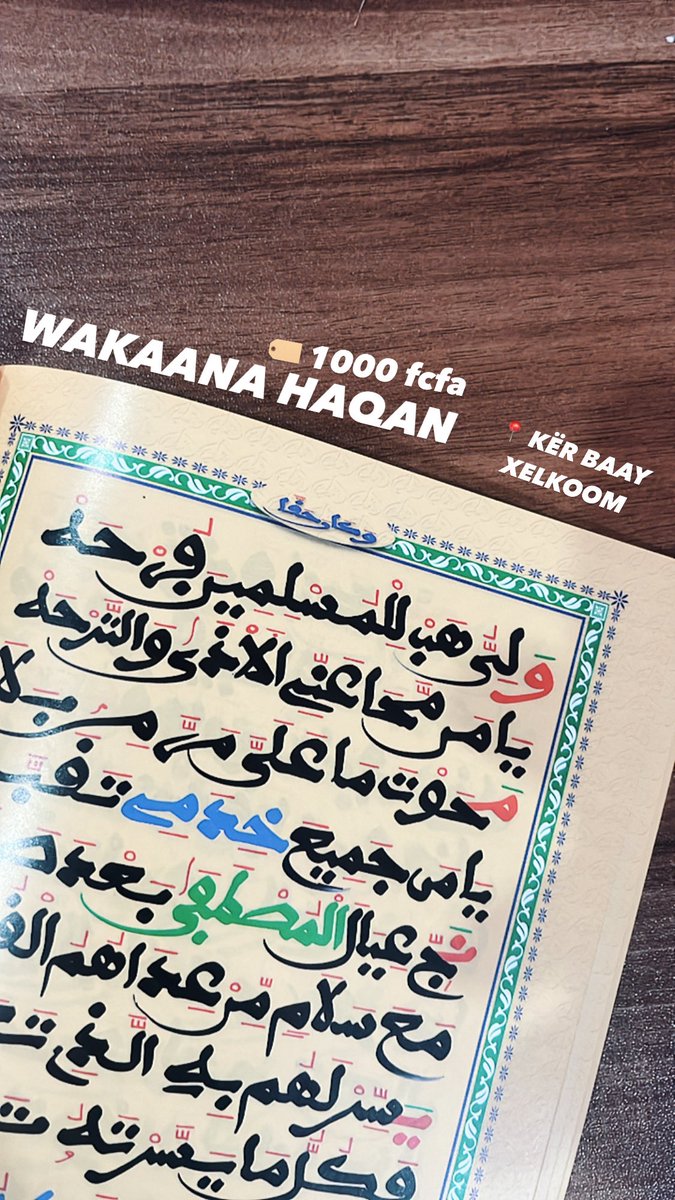 WAKAANA HAQAN
1000 fcfa
KËR BAAY
XELKOOM
وكان حقا
ولى هب للمسلمين فرحه
يامن محا عنى الاذى والترحه
محوت ما على من من
يامن جميع خدمى
نج عيال المصطفى
مع سلام من عداهم
يسر لهم به الذى
وكل ما يسرته